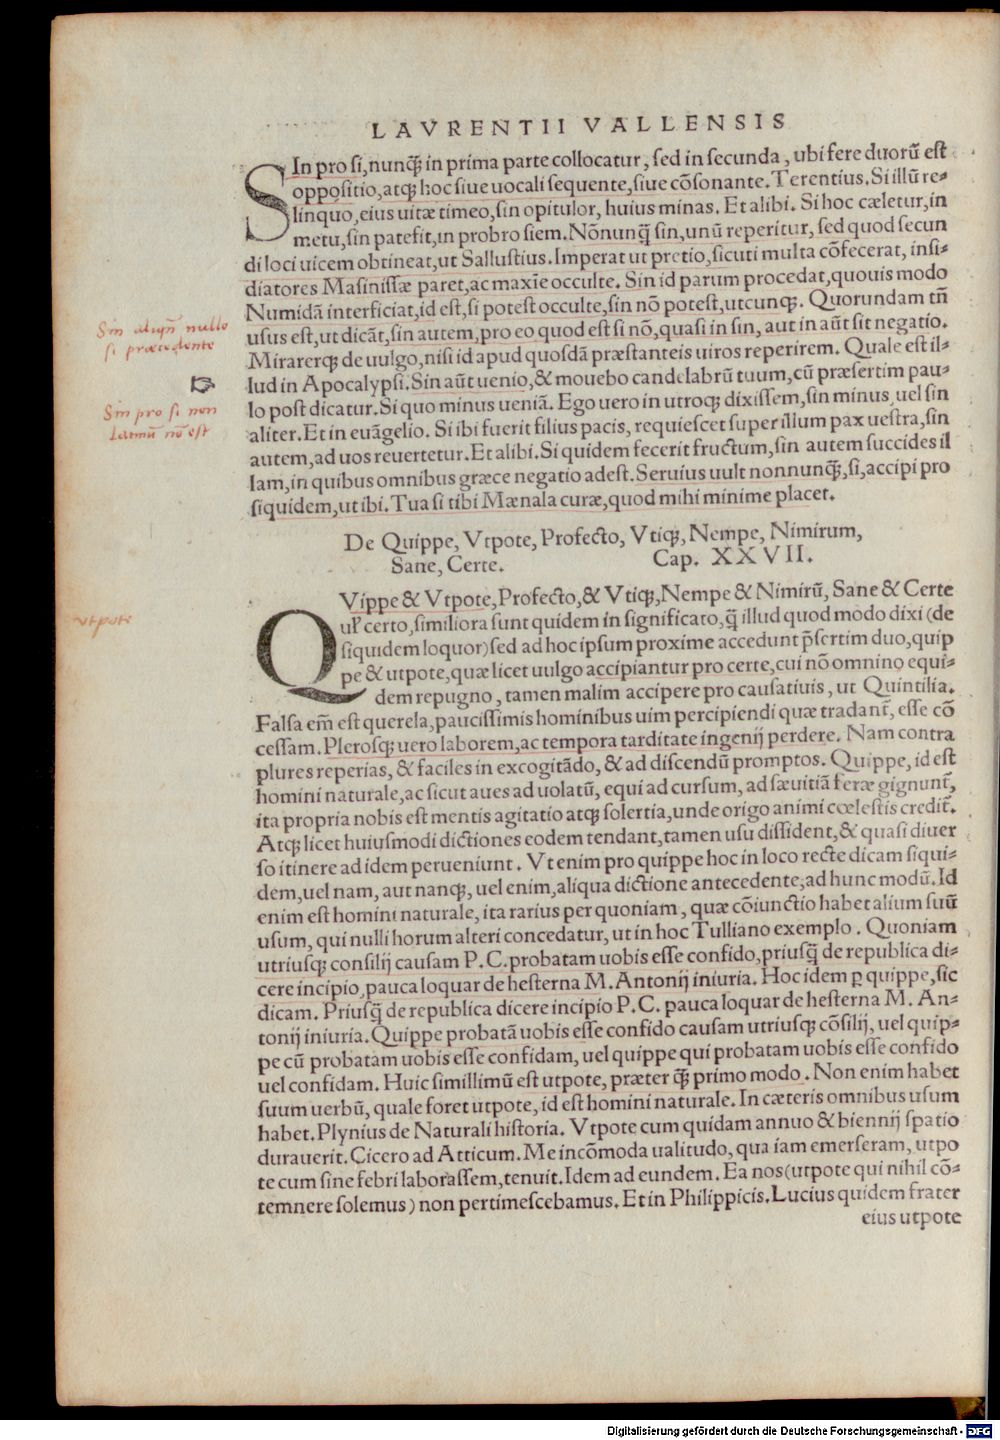 LAVRENTII VALLENSIS
SIn pro si,nunq̃ in prima parte collocatur, sed in secunda, ubi fere duorũ est
oppositio,atq; hoc siue uocali sequente,siue cõsonante. Terentius. Si illũ re-
linquo,eius uitæ timeo,sin opitulor, huius minas. Et alibi. Si hoc cæletur,in
metu,sin patefit,in probro siem. Nõnunq̃ sin,unũ reperitur, sed quod secun
di loci uicem obtineat,ut Sallustius. Imperat ut pretio,sicuti multa cõfecerat, insi-
diatores Masinissæ paret,ac maxĩe occulte. Sin id parum procedat,quouis modo
Numidã interficiat,id est,si potest occulte,sin nõ potest,utcunq;. Quorundam tñ
usus est,ut dicãt,sin autem,pro eo quod est si nõ,quasi in sin, aut in aũt sit negatio.
Mirarerq; de uulgo,nisi id apud quosdã præstanteis uiros reperirem. Quale est il-
lud in Apocalypsi. Sin aũt uenio,& mouebo candelabrũ tuum,cũ præsertim pau-
lo post dicatur. Si quo minus ueniã. Ego uero in utroq; dixissem,sin minus,uel sin
aliter. Et in euãgelio. Si ibi fuerit filius pacis, requiescet super illum pax uestra,sin
autem,ad uos reuertetur. Et alibi. Si quidem fecerit fructum,sin autem succides il
lam,in quibus omnibus græce negatio adest. Seruius uult nonnunq̃,si,accipi pro
siquidem,ut ibi. Tua si tibi Mænala curæ,quod mihi minime placet.
Sin aliqñ nullo
si præcedente
Sin pro si non
Latinũ nõ est
De Quippe, Vtpote, Profecto, Vtiq;, Nempe, Nimirum,
Sane, Certe. Cap. XXVII.
QVippe & Vtpote,Profecto,& Vtiq;,Nempe & Nimirũ, Sane & Certe
uł certo,similiora sunt quidem in significato,q̃ illud quod modo dixi (de
siquidem loquor)sed ad hoc ipsum proxime accedunt p̃sertim duo,quip
pe & utpote,quæ licet uulgo accipiantur pro certe,cui nõ omnino equi-
dem repugno, tamen malim accipere pro causatiuis, ut Quintilia.
vtpote
Falsa em̃ est querela,paucissimis hominibus uim percipiendi quæ tradant̃, esse cõ
cessam. Plerosq; uero laborem,ac tempora tarditate ingenij perdere. Nam contra
plures reperias, & faciles in excogitãdo, & ad discendũ promptos. Quippe, id est
homini naturale,ac sicut aues ad uolatũ, equi ad cursum, ad sæuitiã feræ gignunt̃,
ita propria nobis est mentis agitatio atq; solertia,unde origo animi cœlestis credit̃.
Atq; licet huiusmodi dictiones eodem tendant,tamen usu dissident,& quasi diuer
so itinere ad idem perueniunt. Vt enim pro quippe hoc in loco recte dicam siqui-
dem,uel nam, aut nanq;, uel enim,aliqua dictione antecedente,ad hunc modũ. Id
enim est homini naturale, ita rarius per quoniam, quæ cõiunctio habet alium suũ
usum, qui nulli horum alteri concedatur, ut in hoc Tulliano exemplo. Quoniam
utriusq; consilij causam P.C. probatam uobis esse confido,priusq̃ de republica di-
cere incipio,pauca loquar de hesterna M. Antonij iniuria. Hoc idem ꝑ quippe,sic
dicam. Priusq̃ de republica dicere incipio P.C. pauca loquar de hesterna M. An-
tonij iniuria. Quippe probatã uobis esse confido causam utriusq; cõsilij, uel quip-
pe cũ probatam uobis esse confidam, uel quippe qui probatam uobis esse confido
uel confidam. Huic simillimũ est utpote, præter q̃ primo modo. Non enim habet
suum uerbũ, quale foret utpote, id est homini naturale. In cæteris omnibus usum
habet. Plynius de Naturali historia. Vtpote cum quidam annuo & biennij spatio
durauerit. Cicero ad Atticum. Me incõmoda ualitudo, qua iam emerseram, utpo
te cum sine febri laborassem,tenuit. Idem ad eundem. Ea nos(utpote qui nihil cõ-
temnere solemus) non pertimescebamus. Et in Philippicis. Lucius quidem frater
eius utpote
Digitalisierung gefördert durch die Deutsche Forschungsgemeinschaft - DFG